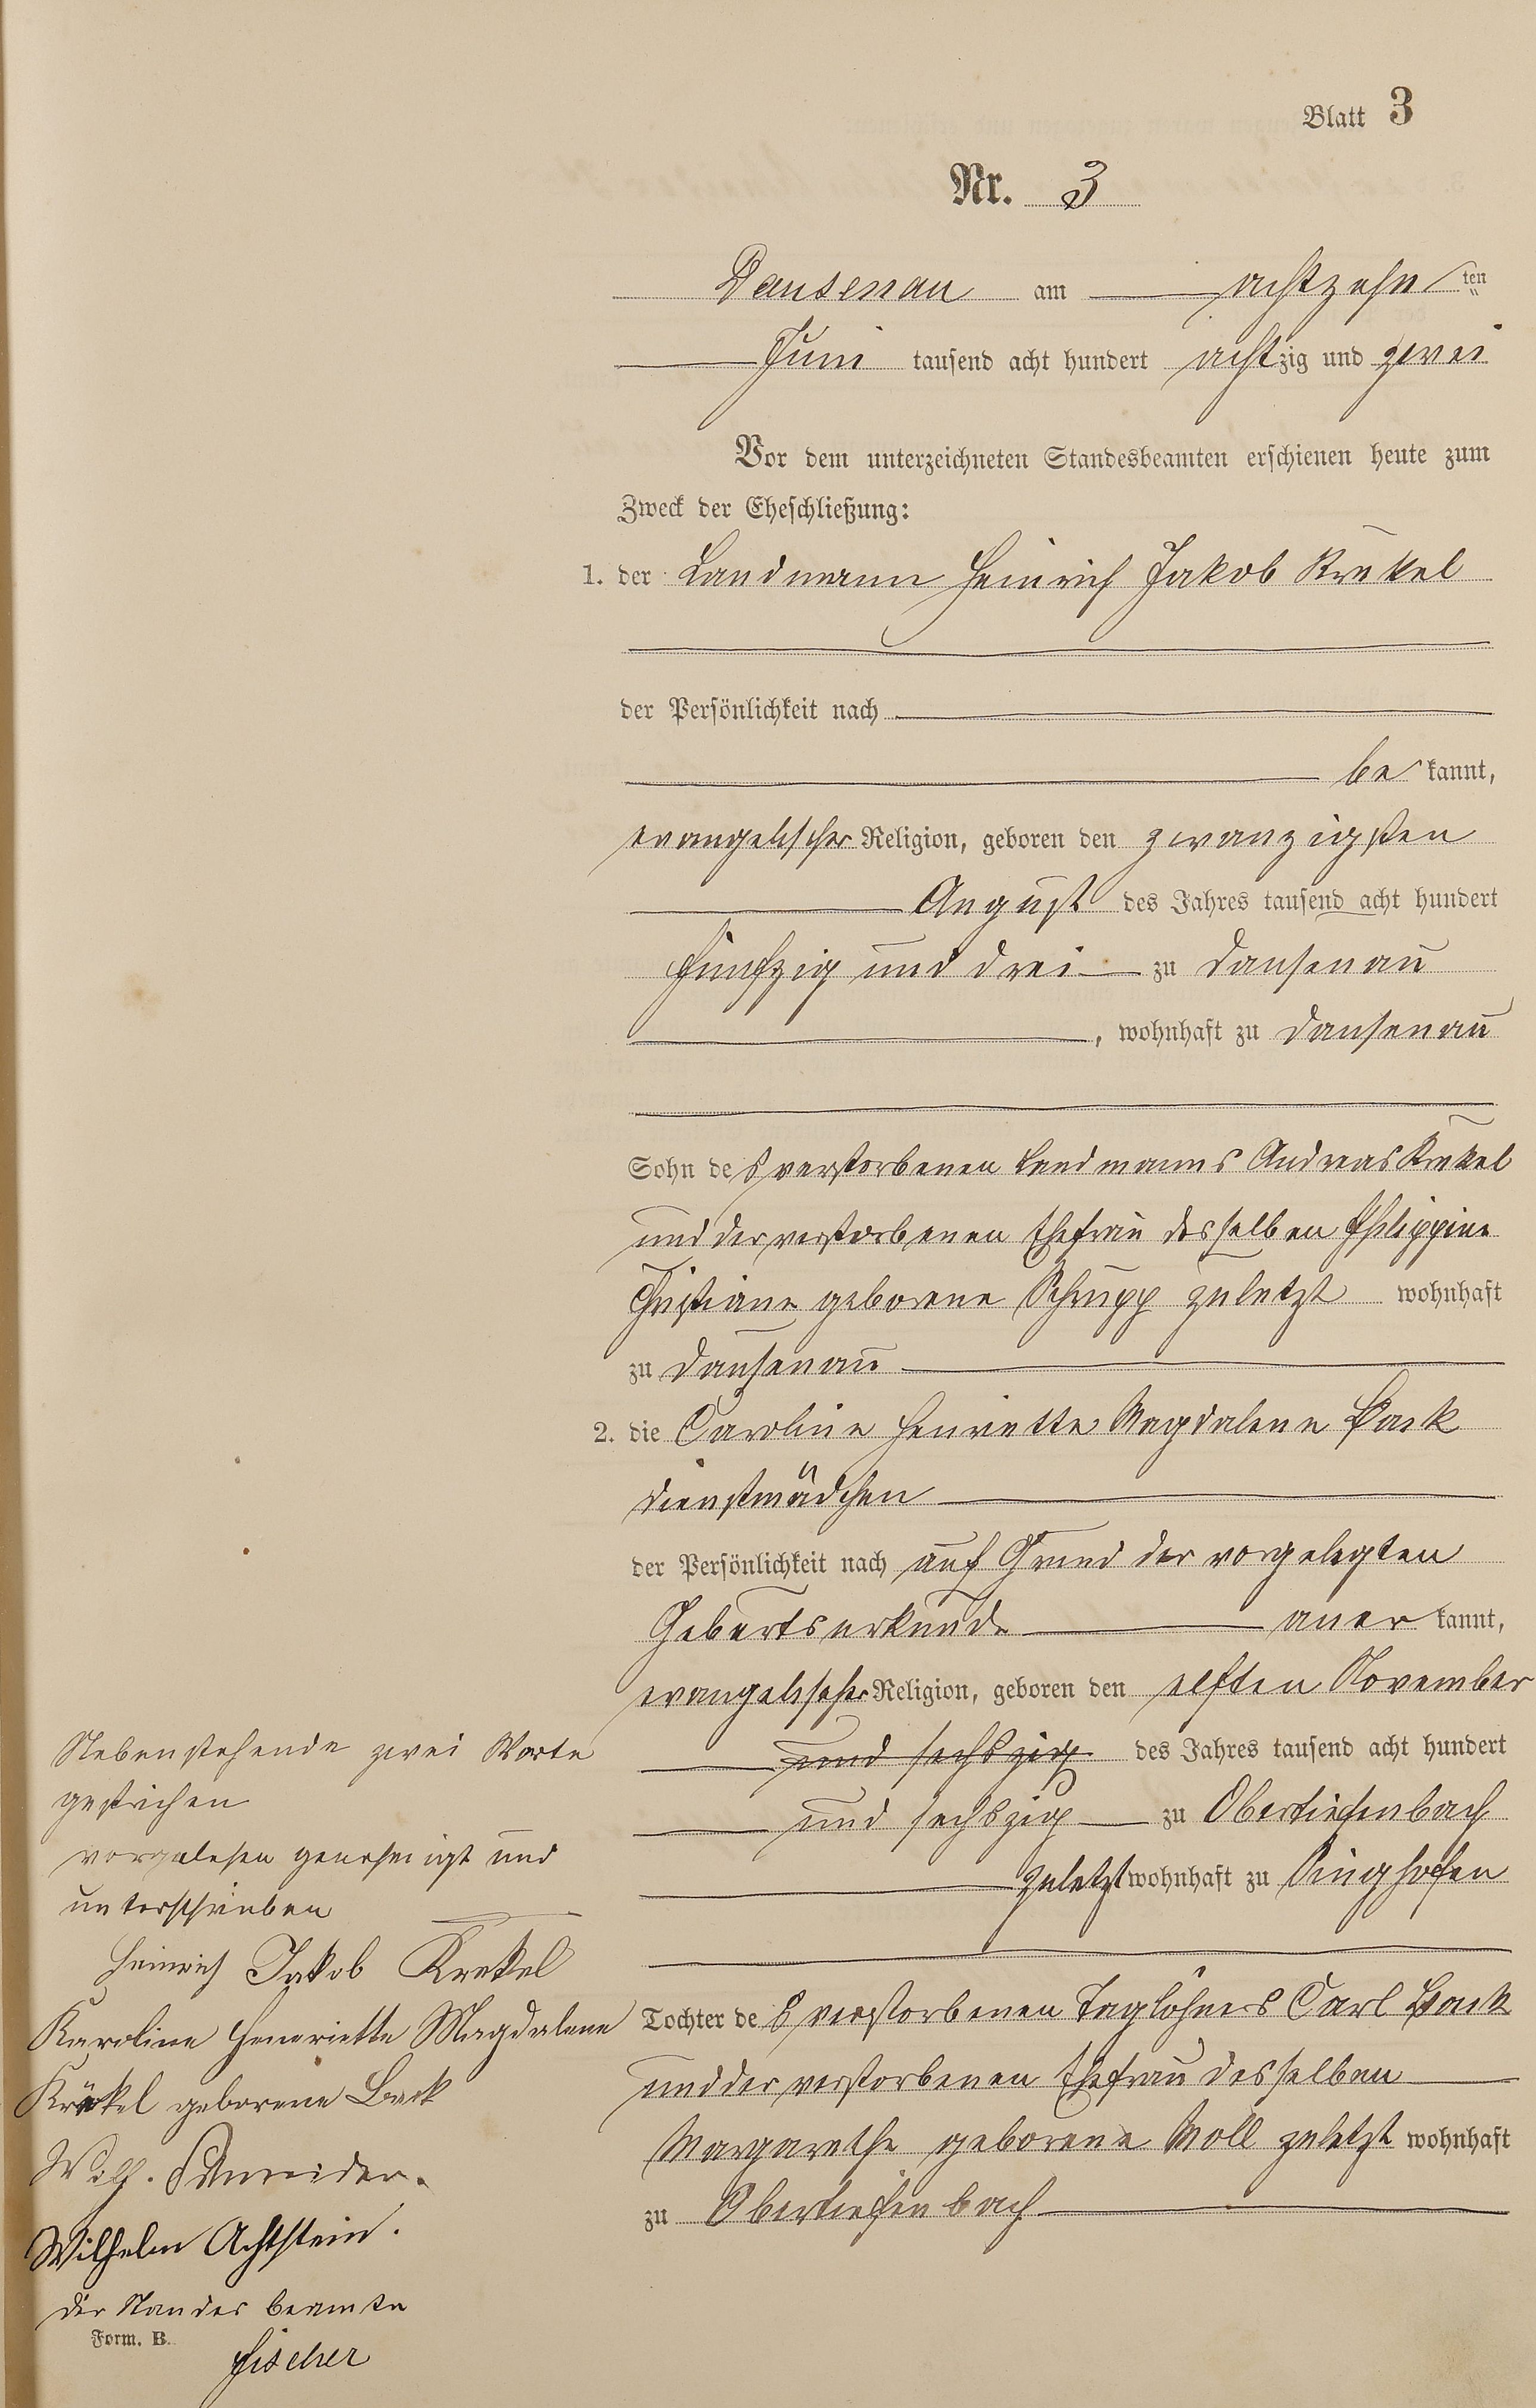 Blatt 3
Nr. 3
Dausenau am achtzehnten
Juni tausend acht hundert achtzig und zwei
Vor dem unterzeichneten Standesbeamten erschienen heute zum
Zweck der Eheschließung:
1. der Landmann Heinrich Jakob Krekel
der Persönlichkeit nach
be kannt,
evangelischer Religion, geboren den zwanzigsten
August des Jahres tausend acht hundert
fünfzig und drei zu Dausenau
, wohnhaft zu Dausenau
Sohn des verstorbenen Landmanns Andreas Krekel
und der verstorbenen Ehefrau desselben Philippine
Christiane geborene Schrupp zuletzt wohnhaft
zu Dausenau
2. die Caroline Henriette Magdalene Back
Dienstmädchen
der Persönlichkeit nach auf Grund der vorgelegten
Geburtsurkunde aner kannt,
evangelischer Religion, geboren den elften November
und sechszig des Jahres tausend acht hundert
und sechszig zu Obertiefenbach
zuletzt wohnhaft zu Singhofen
Tochter des verstorbenen Taglöhners Carl Back
und der verstorbenen Ehefrau desselben
Margarethe geborene Noll zuletzt wohnhaft
zu Obertiefenbach
Nebenstehende zwei Worte
gestrichen
vorgelesen genehmigt und
unterschrieben
Heinrich Jakob Krekel
Karoline Henriette Magdalene
Krekel geborene Back
Wilh. Schneider.
Wilhelm Achtstein.
Der Standesbeamte
Form. B.
Fischer